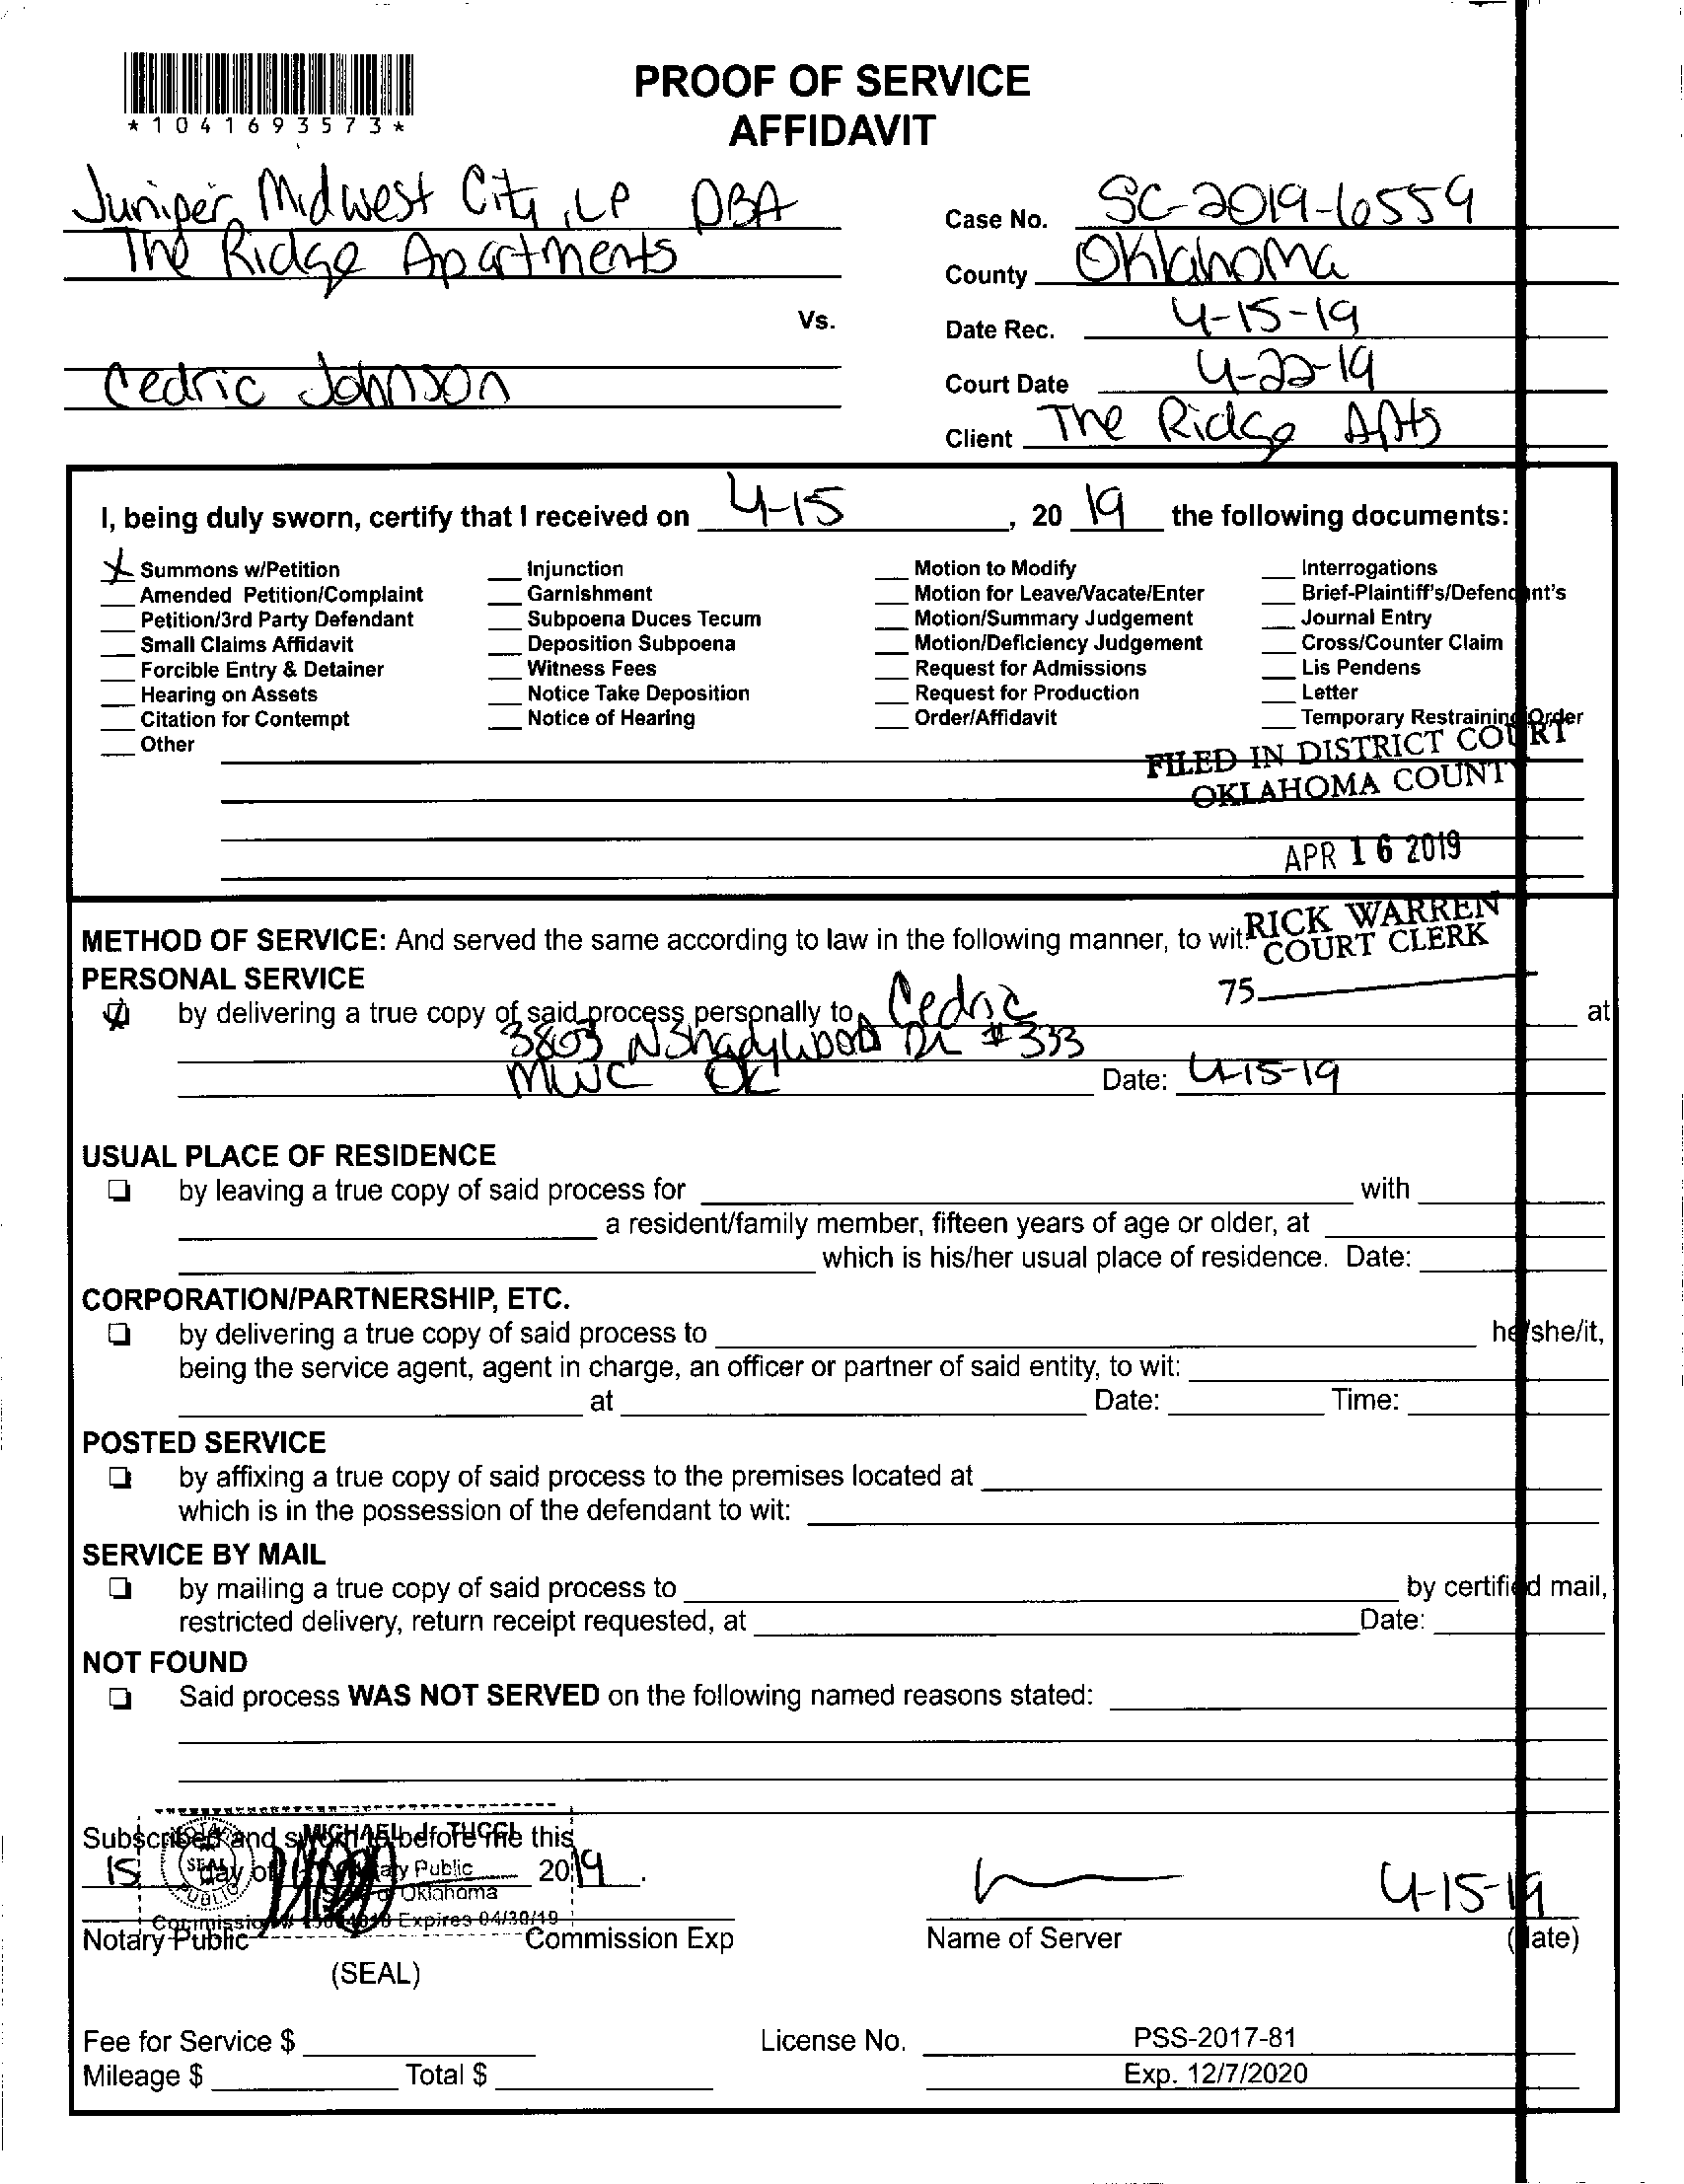 *1041693573*
PROOF OF SERVICE
AFFIDAVIT
Juniper Midwest City, LP DBA
The Ridge Apartments
Vs.
Cedric Johnson
Case No. SC-2019-6559
County Oklahoma
Date Rec. 4-15-19
Court Date 4-22-19
Client The Ridge Apts
I, being duly sworn, certify that I received on 4-15, 20 19 the following documents:
X Summons w/Petition
Amended Petition/Complaint
Petition/3rd Party Defendant
Small Claims Affidavit
Forcible Entry & Detainer
Hearing on Assets
Citation for Contempt
Other
Injunction
Garnishment
Subpoena Duces Tecum
Deposition Subpoena
Witness Fees
Notice Take Deposition
Notice of Hearing
Motion to Modify
Motion for Leave/Vacate/Enter
Motion/Summary Judgement
Motion/Deficiency Judgement
Request for Admissions
Request for Production
Order/Affidavit
Interrogations
Brief-Plaintiff's/Defendant's
Journal Entry
Cross/Counter Claim
Lis Pendens
Letter
Temporary Restraining Order
FILED IN DISTRICT COURT
OKLAHOMA COUNTY
APR 16 2019
RICK WARREN
COURT CLERK
75
METHOD OF SERVICE: And served the same according to law in the following manner, to wit:
PERSONAL SERVICE
by delivering a true copy of said process personally to Cedric at
3803 N Shadywood Dr #333
MWC OK Date: 4-15-19
USUAL PLACE OF RESIDENCE
by leaving a true copy of said process for with
a resident/family member, fifteen years of age or older, at
which is his/her usual place of residence. Date:
CORPORATION/PARTNERSHIP, ETC.
by delivering a true copy of said process to he/she/it,
being the service agent, agent in charge, an officer or partner of said entity, to wit:
at Date: Time:
POSTED SERVICE
by affixing a true copy of said process to the premises located at
which is in the possession of the defendant to wit:
SERVICE BY MAIL
by mailing a true copy of said process to by certified mail,
restricted delivery, return receipt requested, at Date:
NOT FOUND
Said process WAS NOT SERVED on the following named reasons stated:
Subscribed and sworn to before me this
15 day of 2019.
MICHAEL Jr TUCCI
Notary Public
State of Oklahoma
Commission # Expires 04/30/19
SEAL
PUBLIC
Notary Public Commission Exp
(SEAL)
4-15-19
Name of Server (Date)
Fee for Service $
Mileage $ Total $
License No. PSS-2017-81
Exp. 12/7/2020